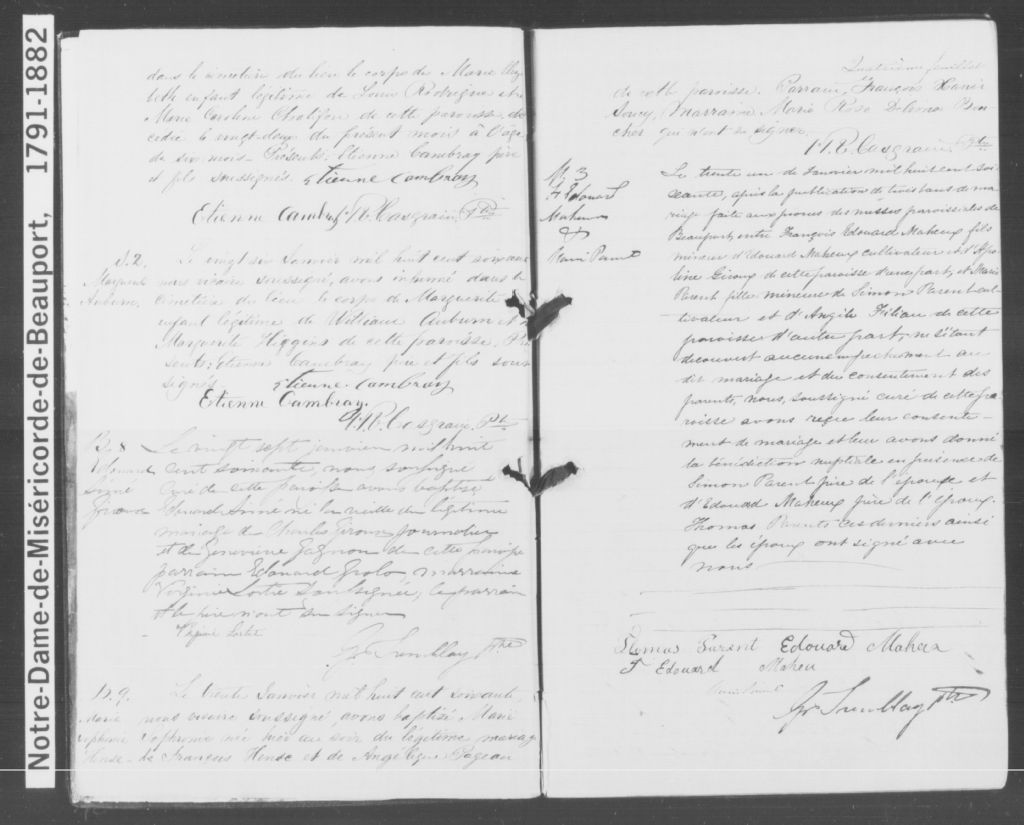 Notre-Dame-de-Miséricorde-de-Beauport, 1791-1882
dans le cimetière du lieu le corps de Marie
enfant légitime de Louis Rodrigue et de
Marie Caroline Chalifou de cette paroisse, dé
cédée le vingt-deux du présent mois à l'âge
de six mois. Présents: Etienne Cambray père
et fils soussignés. Etienne Cambray
Etienne Cambray Casgrain Ptre
S. 2.
Marguerite
Auburn
Le vingt six Janvier mil huit cent soixante
nous vicaire soussigné, avons inhumé dans le
cimetière du lieu le corps de Marguerite
enfant légitime de William Auburn et de
Marguerite Higgins de cette paroisse. Pré
sents: Etienne Cambray père et fils sous
signés. Etienne Cambray
Etienne Cambray.
Casgrain Ptre
B. 8
Edouard
Giroux
Le vingt sept janvier mil huit
cent soixante, nous soussigné
curé de cette paroisse avons baptisé
Edouard né la veille du légitime
mariage de Charles Giroux journalier
et de Geneviève Gagnon de cette paroisse
parrain Edouard marraine
Virginie soussignée, le parrain
et le père n'ont su signer
Gr Tremblay Ptre
B. 9.
Marie
Sophronie
Hense
Le trente Janvier mil huit cent soixante
nous vicaire soussigné, avons baptisé Marie
Sophronie née hier au soir du légitime mariage
de François Hense et de Angélique Pageau
Quatrième feuillet
de cette paroisse. Parrain, François Xavier
Marraine Marie Rose
cher qui n'ont su signer.
Casgrain Ptre
M. 3
F. Edouard
Maheux
&
Parent
Le trente un de Janvier mil huit cent soi-
xante, après la publication de trois bans de ma
riage faite aux prônes des messes paroissiales de
Beauport, entre François Edouard Maheux fils
mineur d'Edouard Maheux cultivateur et d'
Giroux de cette paroisse d'une part, et Marie
Parent fille mineure de Simon Parent cul-
tivateur et d'Angèle Filian de cette
paroisse d'autre part; ne s'étant
découvert aucun empêchement au
dit mariage et du consentement des
parents, nous, soussigné curé de cette pa-
roisse avons reçu leur consente-
ment de mariage et leur avons donné
la bénédiction nuptiale en présence de
Simon Parent père de l'épouse et
d'Edouard Maheux père de l'époux.
Thomas Parent: ces derniers ainsi
que les époux ont signé avec
nous
Thomas Parent Edouard Maheux
F Edouard Maheu
Gr Tremblay Ptre